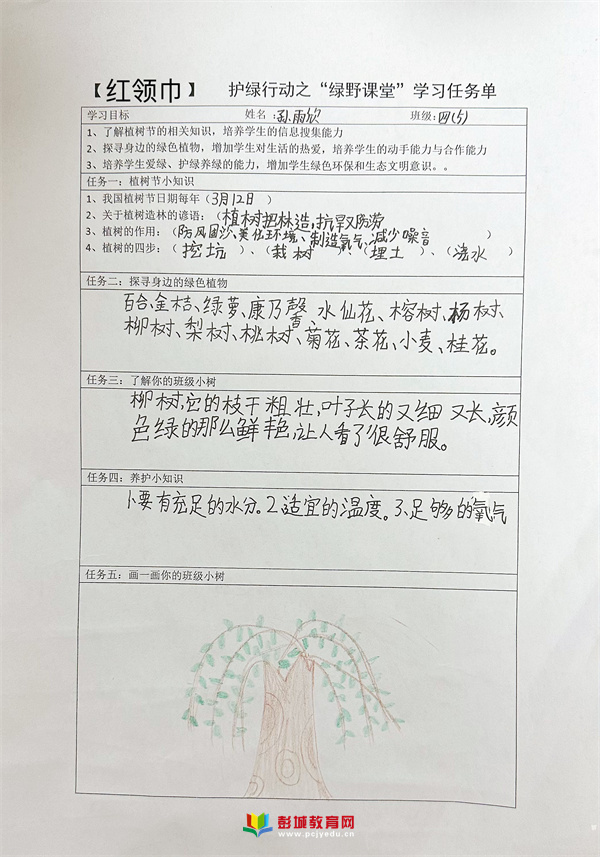 【红领巾】 护绿行动之“绿野课堂”学习任务单
学习目标 姓名：孙雨欣 班级：四(5)
1、了解植树节的相关知识，培养学生的信息搜集能力
2、探寻身边的绿色植物，增加学生对生活的热爱，培养学生的动手能力与合作能力
3、培养学生爱绿、护绿养绿的能力，增加学生绿色环保和生态文明意识。。
任务一：植树节小知识
1、我国植树节日期每年（3月12日）
2、关于植树造林的谚语：（植树把林造，抗旱又防涝
3、植树的作用：（防风固沙、美化环境、制造氧气、减少噪音）
4、植树的四步：（挖坑）、（栽树）、（埋土）、（浇水）
任务二：探寻身边的绿色植物
百合、金桔、绿萝、康乃馨、水仙花、榕树、杨树、
柳树、梨树、桃树、菊花、茶花、小麦、桂花。
任务三：了解你的班级小树
柳树，它的枝干粗壮，叶子长的又细又长，颜
色绿的那么鲜艳，让人看了很舒服。
任务四：养护小知识
1、要有充足的水分。2、适宜的温度。3、足够多的氧气
任务五：画一画你的班级小树
彭城教育网
www.pcjyedu.cn